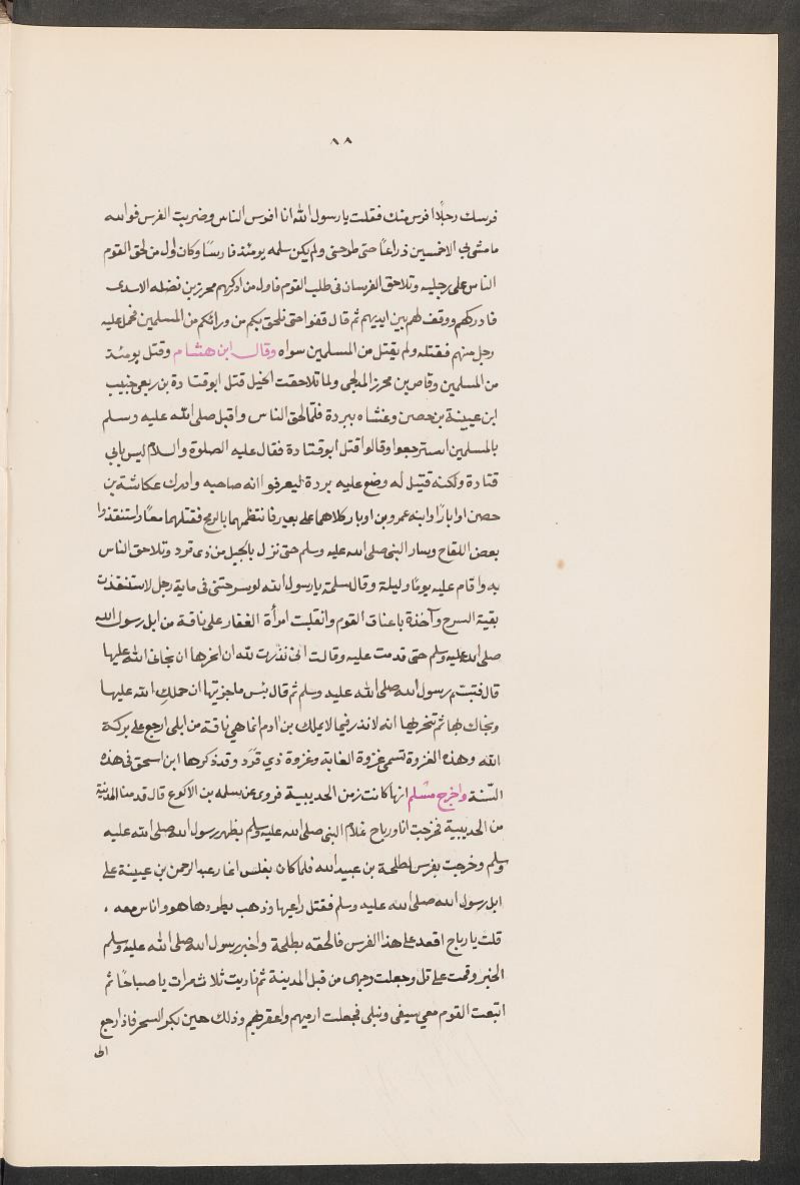 ٨٨
فرسك رجلًا افرس منك فقلت يا رسول الله انا افرس الناس وضربت الفرس فوالله
ما مشى بي الا خمسين ذراعًا حتى طرحني ولم يكن سلمه يومئذ فارسًا وكان اول من لحق القوم
الناس على رجليه وتلاحق الفرسان فى طلب القوم فاول من ادركهم محرز بن نضله الاسدى
فادركهم ووقف لهم بين ايديهم ثم قال قفوا حتى نلحق بكم من ورائكم من المسلمين فحمل عليه
رجل منهم فقتله ولم يقتل من المسلمين سواه وقال ابن هشام وقتل يومئذ
من المسلمين وقاص بن محرز المدلجى ولما تلاحقت الخيل قتل ابوقتادة بن ربعى حبيب
ابن عيينة بن حصن وغشاه ببردة فلما لحق الناس واقبل صلى الله عليه وسلم
بالمسلمين استرجعوا وقالوا قتل ابوقتادة فقال عليه الصلوة والسلام ليس بابي
قتادة ولكنه قتيل له وضع عليه بردة ليعرفوا انه صاحبه وادرك عكاشة بن
حصن اوابارًا وابنه عمرو بن اوبار كلاهما على بعير فانتظمهما بالرمح فقتلهما معًا واستنقذوا
بعض اللقاح وسار النبي صلى الله عليه وسلم حتى نزل بالجبل من ذى قرد وتلاحق الناس
به واقام عليه يومًا وليلة وقال سلمة يا رسول الله لو سرحتنى فى ماية رجل لاستنقذت
بقية السرح وآخذة باعناق القوم وانقلبت امرأة الغفار على ناقة من ابل رسول الله
صلى الله عليه وسلم حتى قدمت عليه وقالت انى نذرت لله ان انحرها ان نجانى الله عليها
قال فتبسم رسول الله صلى الله عليه وسلم ثم قال بئس ما جزيتها ان حملك الله عليها
ونجاك بها ثم تنحريها انه لا نذر فيما لا يملك بن ادم انما هي ناقة من ابلى ارجع على بركة
الله وهذه الغزوة تسمى غزوة الغابة وغزوة ذي قَرَد وقد ذكرها ابن اسحق فى هذه
السّنة واخرج مسْلم انها كانت زمن الحديبية فروى عن سلمه بن الاكوع قال قدمنا المدينة
من الحديبية فخرجت انا ورباح غلام النبى صلى الله عليه وسلم بظهر رسول الله صلى الله عليه
وسلم وخرجت بفرس لطلحة بن عبيد الله فلما كان بغلس اغار عبد الرحمن بن عيينة على
ابل رسول الله صلى الله عليه وسلم فقتل راعيها وذهب يطردها هو واناس معه .
قلت يا رباح اقعد على هذا الفرس فالحقه بطلحة واخبر رسول الله صلى الله عليه وسلم
الخبر وقمت على تل وجعلت وجهى من قبل المدينة ثم ناديت ثلاث مرات يا صباحًا ثم
اتبعت القوم معي سيفى ونبلى فجعلت ارميهم واعقر بهم وذلك حين بكر السحر فاذا رجع